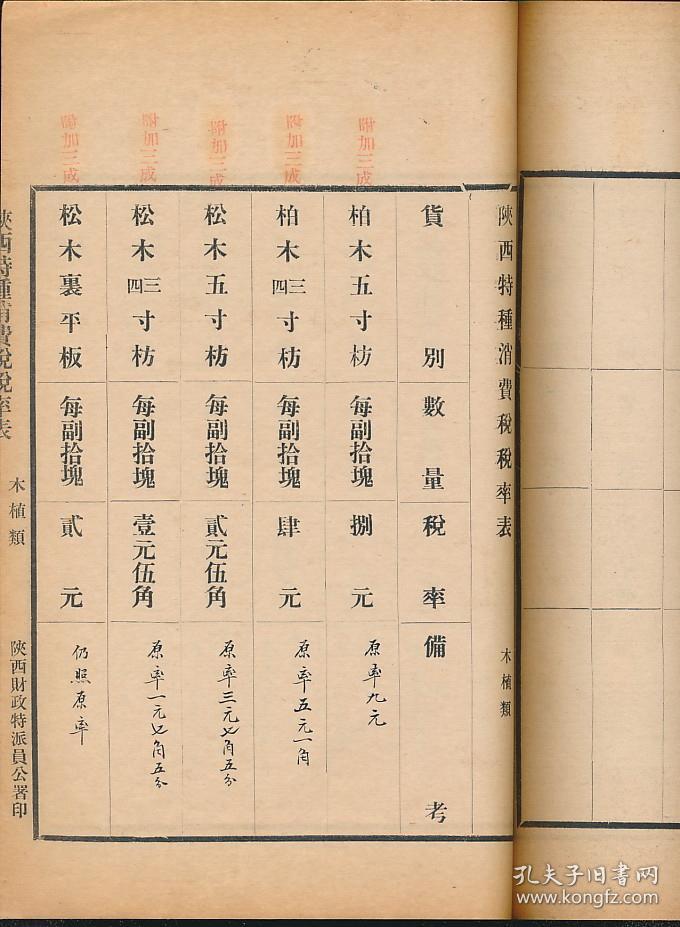 陝西特種消費稅稅率表 木植類
貨別 數量 稅率 備考
附加三成
柏木五寸枋 每副拾塊 捌元 原率九元
附加三成
柏木三四寸枋 每副拾塊 肆元 原率五元一角
附加三成
松木五寸枋 每副拾塊 貳元伍角 原率三元七角五分
附加三成
松木三四寸枋 每副拾塊 壹元伍角 原率一元七角五分
附加三成
松木裏平板 每副拾塊 貳元 仍照原率
陝西特種消費稅稅率表 木植類 陝西財政特派員公署印
孔夫子旧书网
www.kongfz.com